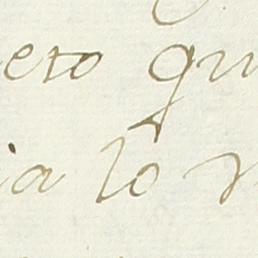 eto qu
ia lo